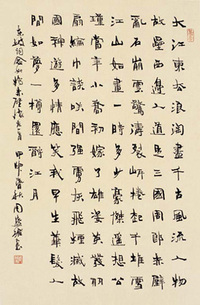 大江東去浪淘盡千古風流人物
故壘西邊人道是三國周郎赤壁
亂石崩雲驚濤裂岸捲起千堆雪
江山如畫一時多少豪傑遙想公
瑾當年小喬初嫁了雄姿英發羽
扇綸巾談笑間檣櫓灰飛煙滅故
國神遊多情應笑我早生華髮人
間如夢一樽還酹江月
東坡詞念奴嬌赤壁懷古 甲申